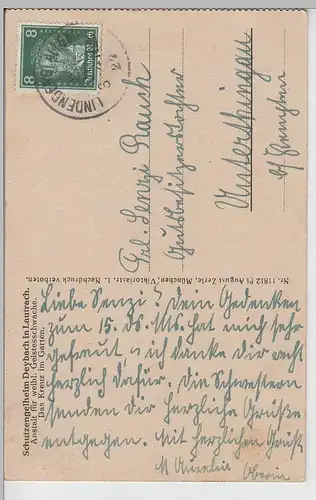 8
8
Deutsches Reich
LINDENBE
Frl. Senzi Rauch
Gutsbesitzerstochter
Unterthingau
b/ Kempten
Nr. 11812 Pl August Zerle, München, Viktoriastr. 1. Nachdruck verboten.
Schutzengelheim Deybach in Lautrach.
Anstalt für weibl. Geistesschwache.
Das Kreuz im Garten.
Liebe Senzi! Dein Gedenken
zum 15. ds. Mts. hat mich sehr
gefreut u. ich danke Dir recht
herzlich dafür. Die Schwestern
senden Dir herzliche Grüße
entgegen. Mit herzlichem Gruß
M. Aurelia Oberin